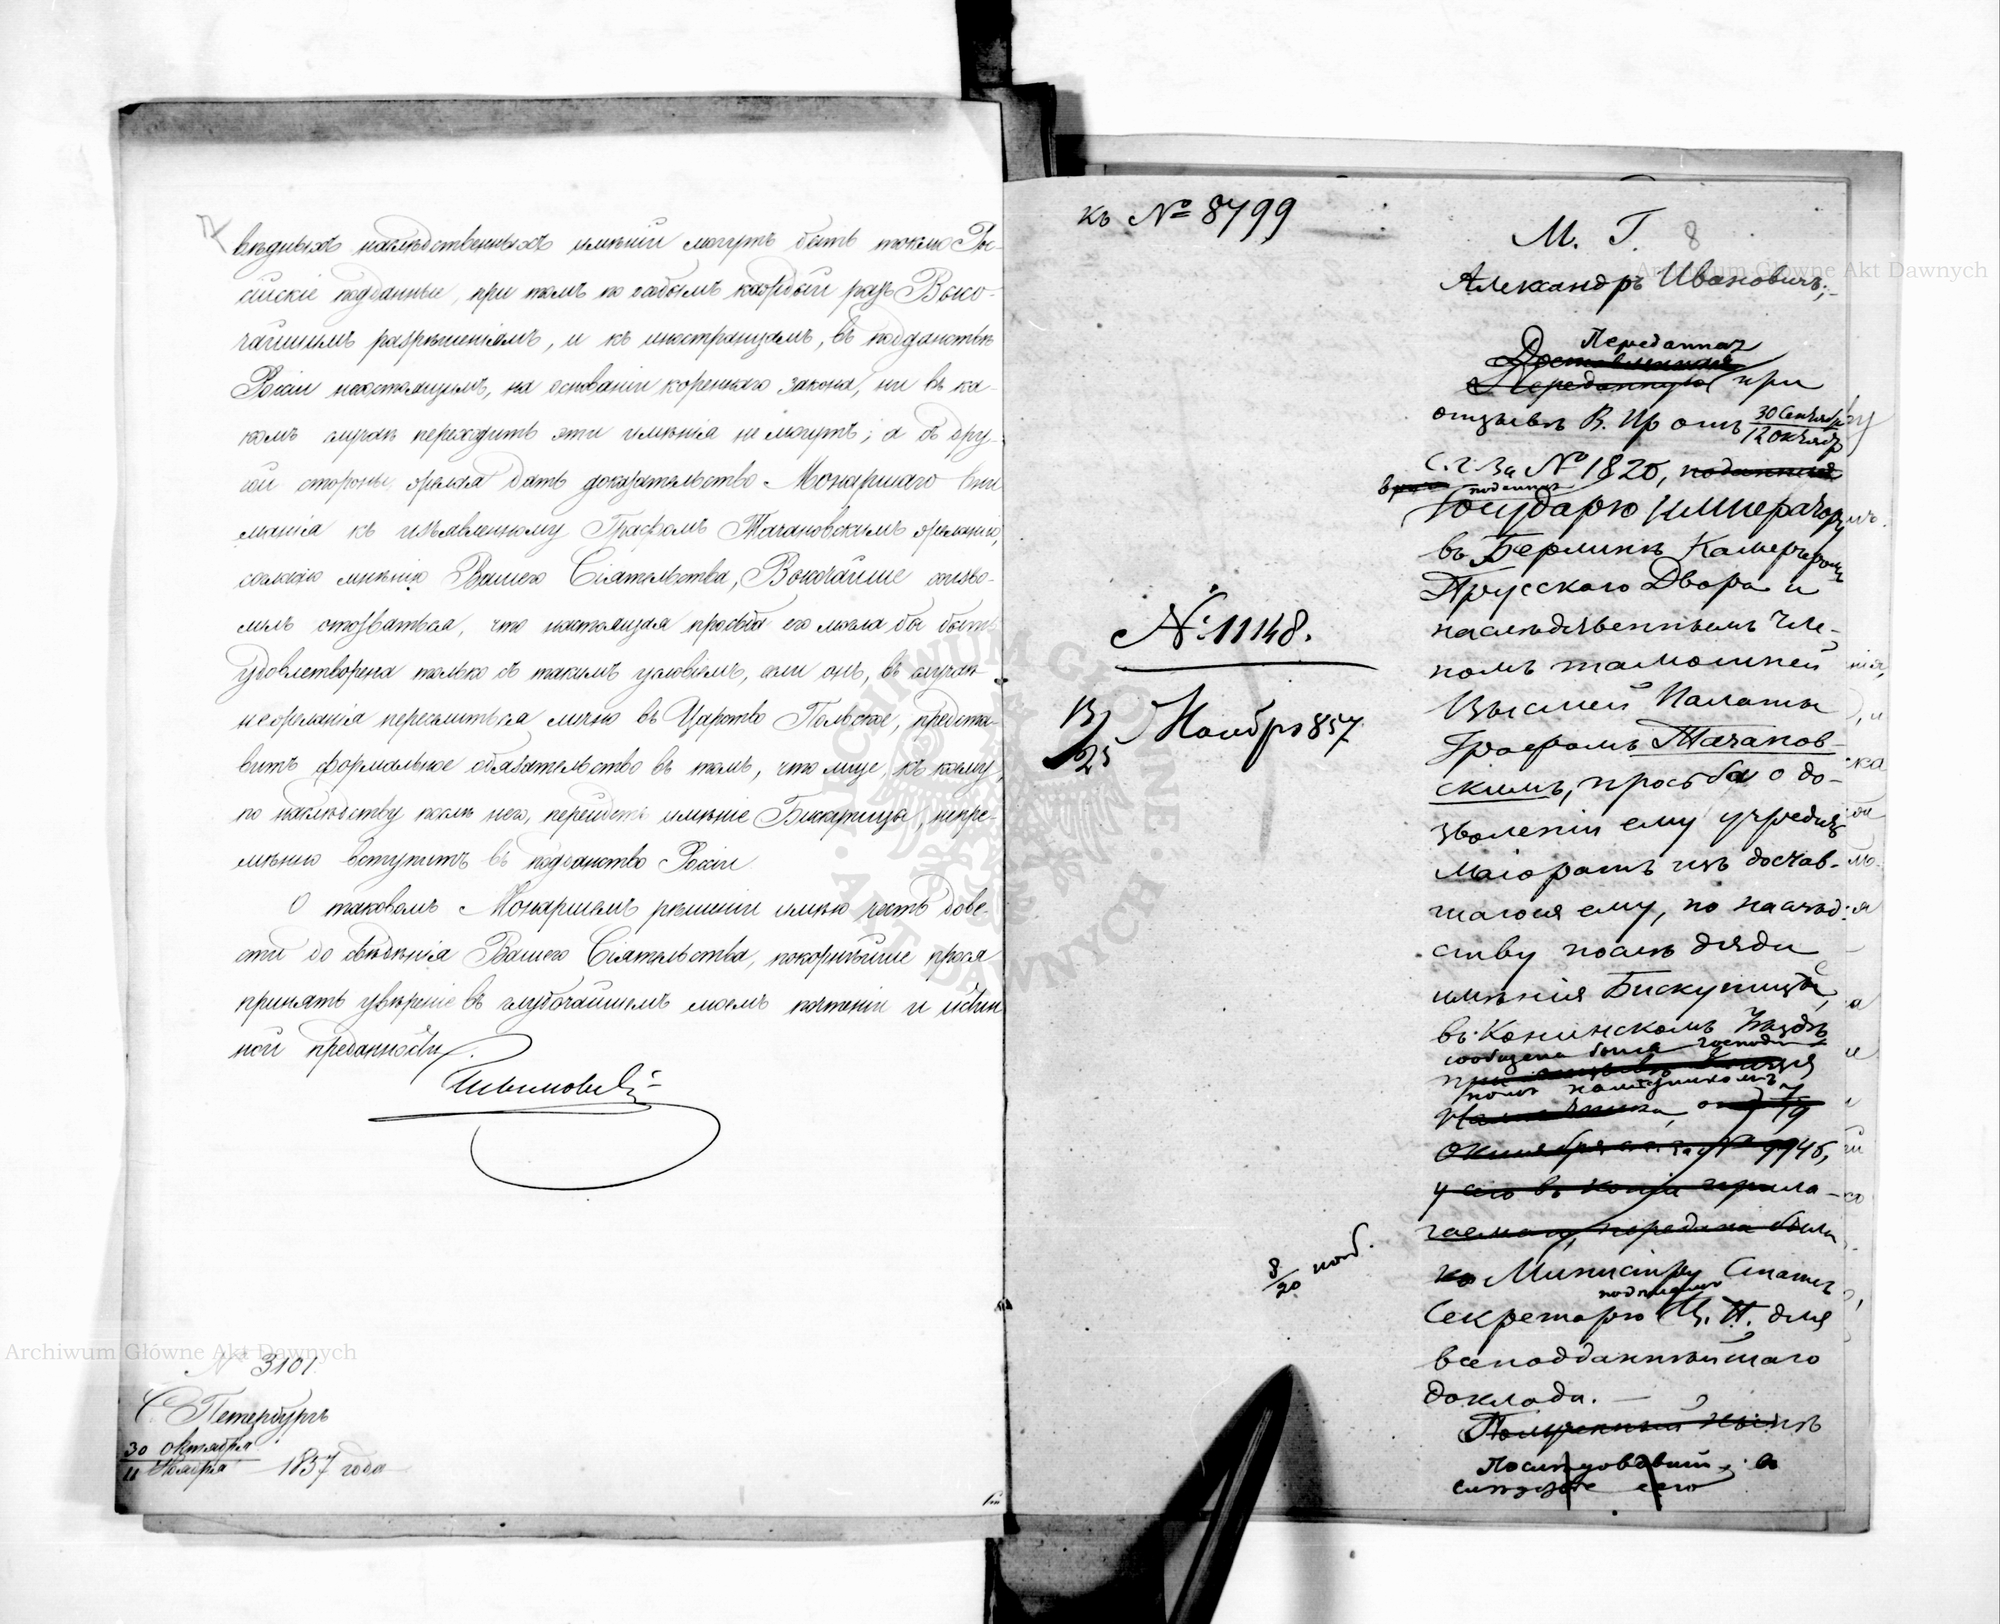 вѣдныхъ наслѣдственныхъ имѣній могутъ быть токмо Рос-
сійскіе подданные, при томъ каждый разъ Высо-
чайшимъ разрѣшеніемъ, и къ иностранцамъ, въ подданствѣ
Россіи несостоящимъ, на основаніи кореннаго закона, ни въ ка-
комъ случаѣ переходить эти имѣнія не могутъ; а съ дру-
гой стороны, желая дать доказательство Монаршаго вни
манія къ изъявленному Графомъ Тачановскимъ желанію,
согласно мнѣнію Вашего Сіятельства, Высочайше изво-
лилъ отозваться, что настоящая просьба его могла бы быть
удовлетворена только съ такимъ условіемъ, если онъ, въ случаѣ
нежеланія переселиться лично въ Царство Польское, предста-
витъ формальное обязательство въ томъ, что лице, къ кому,
по наслѣдству послѣ него, перейдетъ имѣніе Бискупицы, непре-
мѣнно вступитъ въ подданство Россіи.
О таковомъ Монаршемъ рѣшеніи имѣю честь дове-
сти до свѣдѣнія Вашего Сіятельства, покорнѣйше прося
принять увѣреніе въ глубочайшемъ моемъ почтеніи и истин
ной преданности.
№ 3101.
С. Петербургъ
30 октября
11 Ноября 1857 года
къ № 8799
№ 11148.
13/25 Ноября 857.
8/20 нояб.
М. Г. 8
Александръ Ивановичъ;
Переданная
Доставленная
Переданную при
отзывѣ В. Пр отъ 30 Сентябр/12 Октябр
с. г. за № 1820, поданная
поданная
Государю Императору
въ Берлинѣ Камергеромъ
Прусскаго Двора и
наслѣдственнымъ Чле-
номъ тамошней
Высшей Палаты
Графомъ Тачанов-
скимъ, просьба о до-
зволеніи ему учредить
Маіоратъ изъ достав-
шагося ему, по наслѣд-
ству послѣ дяди
имѣнія Бискупицы,
въ Конинскомъ Уѣздѣ
сообщена была Господи
номъ Намѣстникомъ
Намѣстника, отъ 7/19
Октября с. г. за № 9946,
у сего въ копіи прила-
гаемаго, передана была
къ Министру Статсъ
Секретарю Ц. П. для
всеподданнѣйшаго
доклада. —
Полученный нынѣ
Послѣдовавшій, въ
слѣдствіе сего